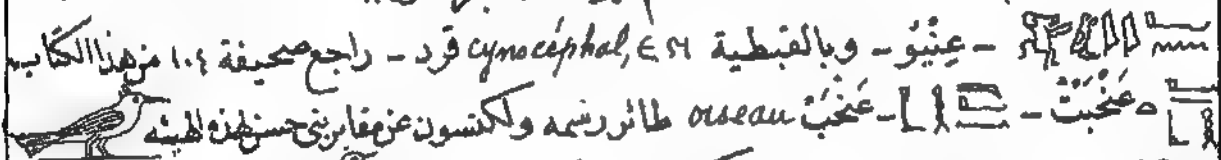 - عِنْيُو - وبالقبطية ⲉⲛ cynocéphal, قرد - راجع صحيفة ١٠٤ من هذا الكتاب
عَنْخْبَتْ - عَنْخَبْ oiseau طائر رسمه ولكنسون عن مقابر بنى حسن بهذه الهيئة